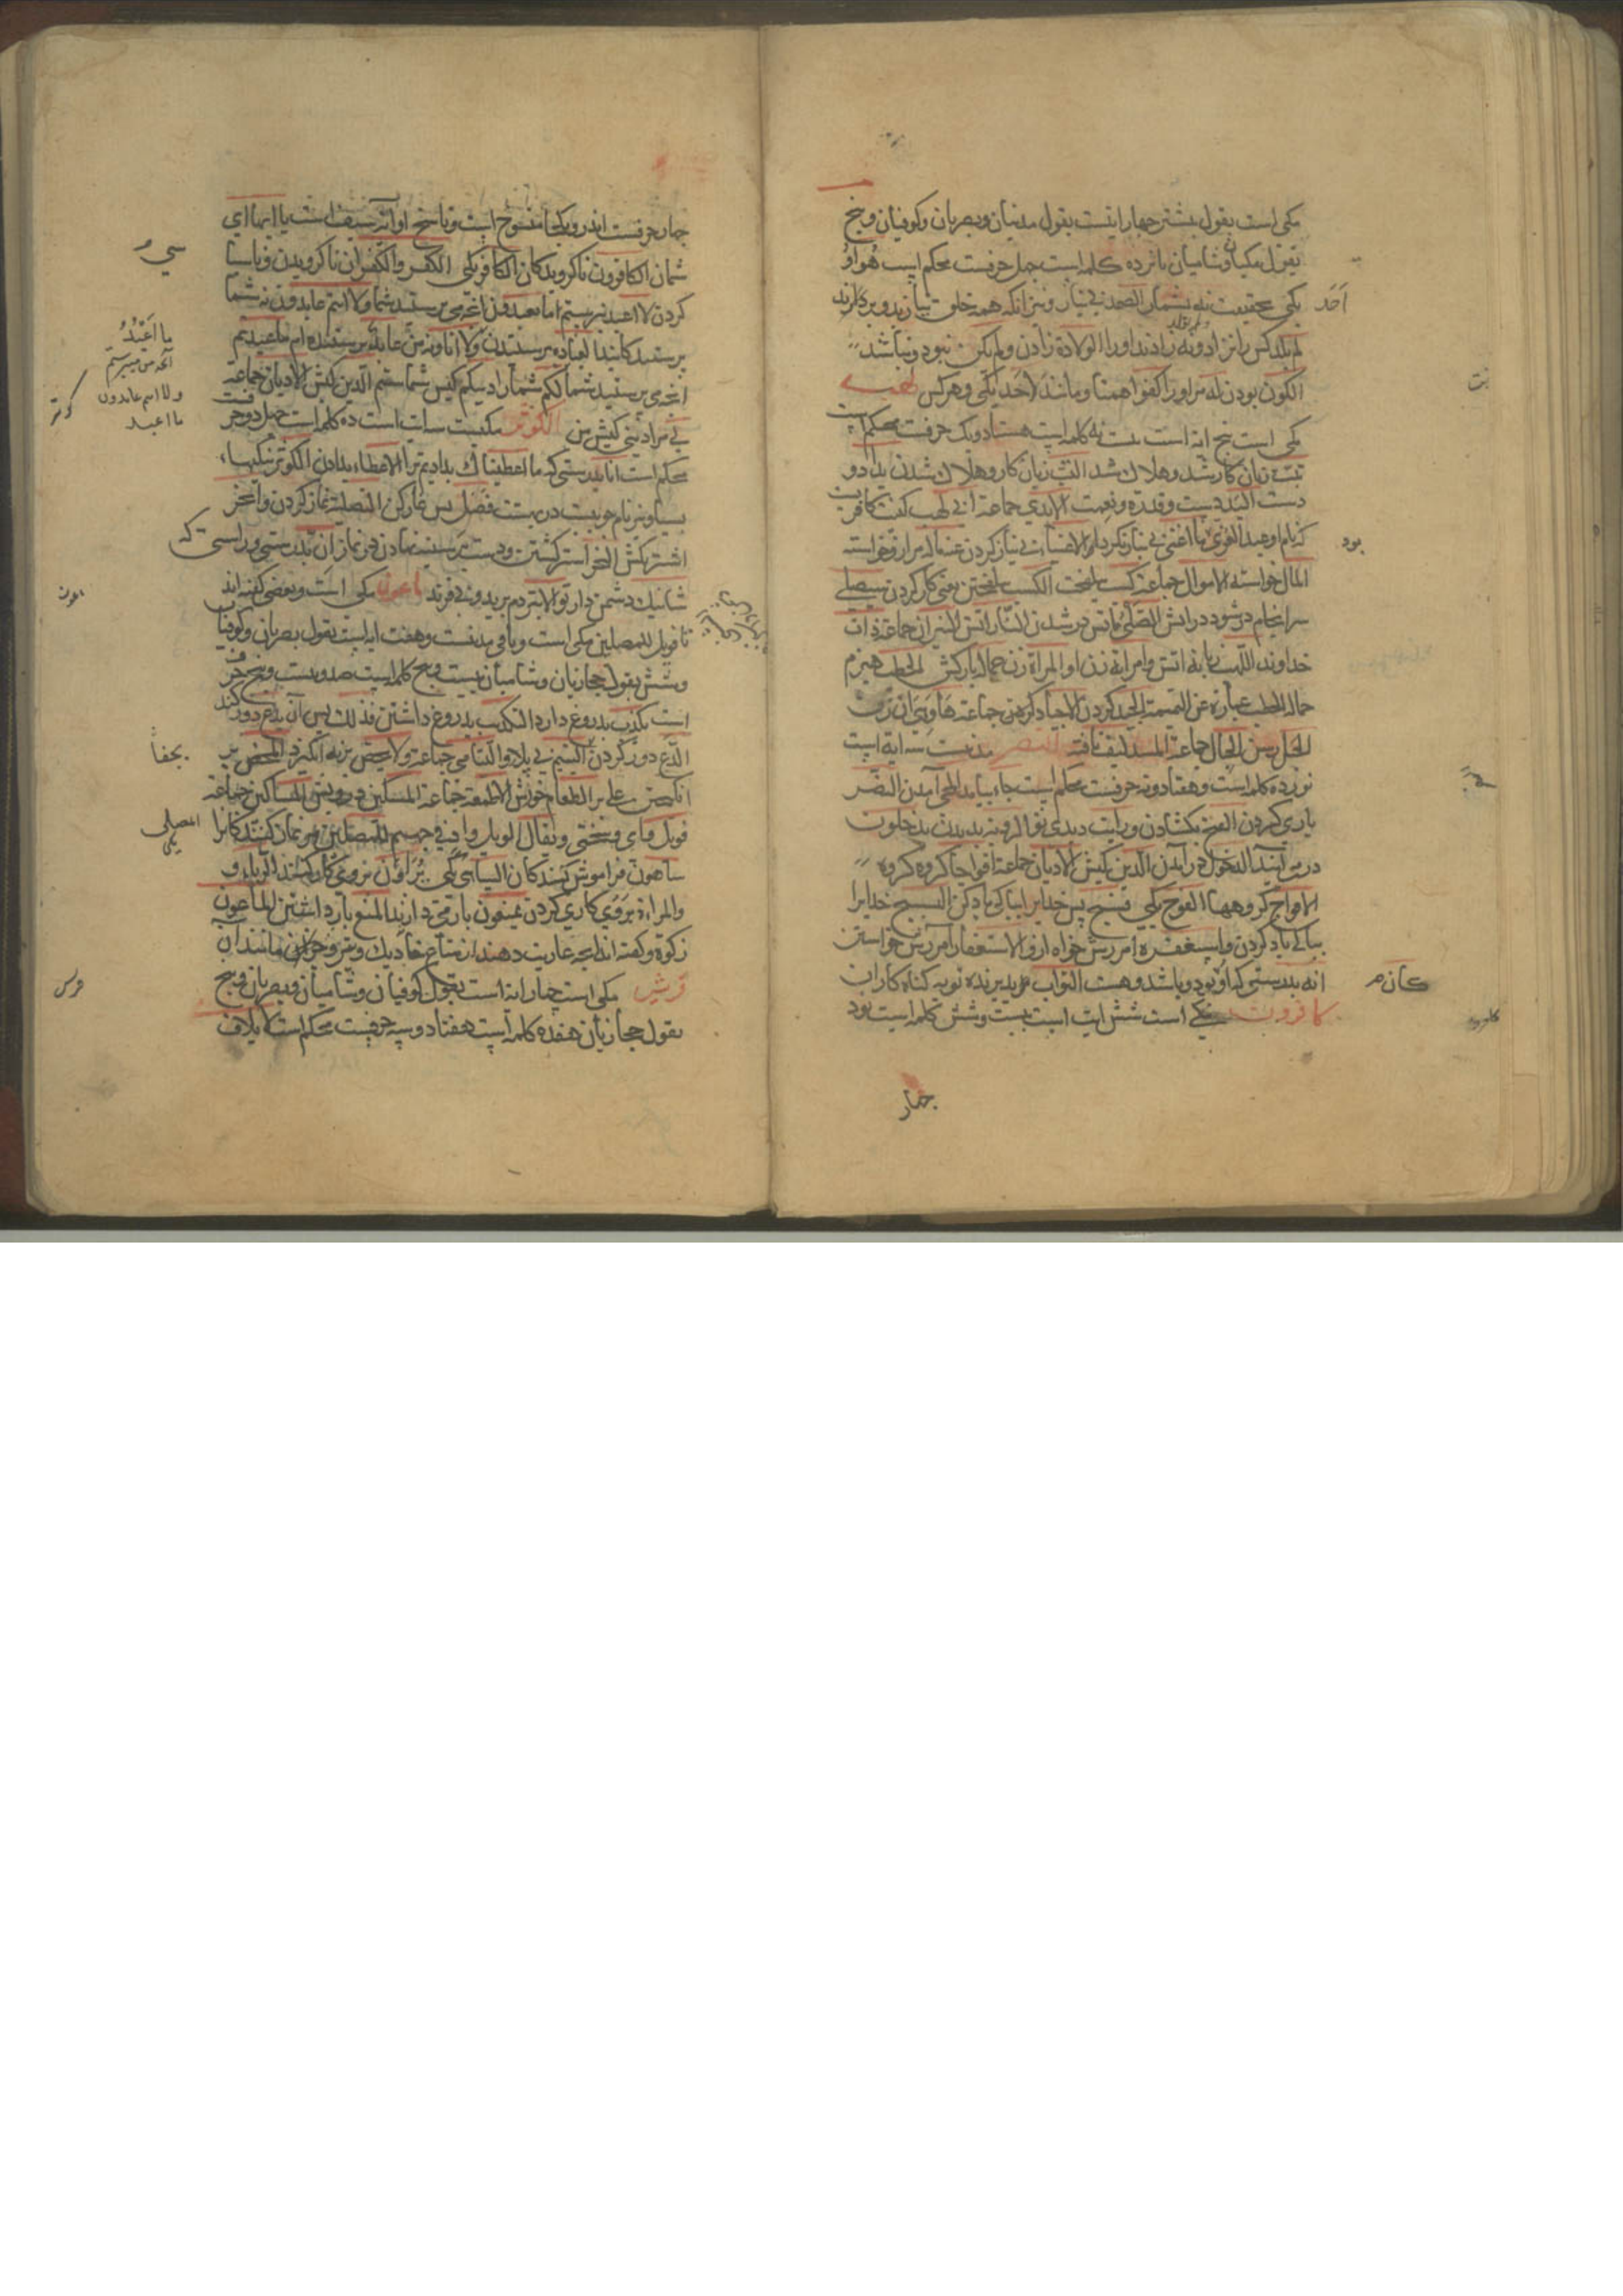 مکی است بقول بیشتر چهار ایتست بقول مدنیان وبصریان وکوفیان وپنج
بقول مکیان وشامیان پانزده کلمه است چهل حرفست محکم است هو او
احد
یکی بحقیقت نه بشمار الصمد بی نیاز ونیز انکه همه خلق نیاز بدو بردارند
لم یلد کس را نزاد ولم یولد ونه زادند اورا الولادة زادن ولم یکن نبود ونباشد
الکون بودن له مر اورا کفوا همتا ومانند احد یکی وهر کس لهب
مکی است پنج ایة است بیست نه کلمه است هشتاد ویک حرفست محکم است
تبت زیان کار شد وهلاک شد التب زیان کار وهلاک شدن یدا دو
دست الید دست وقدرة ونعمت الایدی جماعة ابی لهب کنیت کافریست
بود
که نام او عبد العزی ما اغنی بی نیاز نکرد الاغناء بی نیاز کردن عنه ماله مر اورا خواسته
المال خواسته الاموال جماعة کسب الکسب یعنی کار کردن سیصلی
سرانجام در شود در اتش الصلی باتش در شدن النار اتش النیران جماعة ذات
خداوند اللهب زبانه اتش وامراته زن او المراة زن حمالة بارکش الحطب هیزم
حمالة الحطب عبارة عن النمیمة الجید کردن الاجیاد جماعة
الحبل رسن الحبال جماعة المسد لیف بافته النصر مدنیست سه ایة است
نوزده کلمه است وهفتاد ونه حرفست محکم است جاء بیامد المجی آمدن النصر
یاری کردن الفتح بکشادن ورایت دیدی تو الرویة بدیدن یدخلون
در می ایند الدخول در آمدن الدین کیش الادیان جماعة افواجا کروه کروه
الافواج کروهها الفوج یکی فسبح پس خدایرا بپاکی یاد کن التسبیح خدایرا
بپاکی یاد کردن واستغفره امرزش خواه ازو الاستغفار آمرزش خواستن
کان
انه بدرستی که او بود وباشد وهست التواب پذیرنده توبه کناه کاران
کافرون مکی است شش ایت است بیست وشش کلمه است نود
چهار
چهار حرفست اندرو یکجا منسوخ است وناسخ او آیة سیف است یا ایها ای
شمان الکافرون ناکرویدکان الکافر یکی الکفر والکفران ناکرویدن وناسپاسی
کردن لا اعبد نپرستم ما تعبدون انچه می پرستید شما ولا انتم عابدون نه شما
پرستندکانید العبادة پرستیدن ولا انا ونه من عابد پرستنده ام ما عبدتم
ما اعبد
آنچه من میپرستم
ولا انتم عابدون
ما اعبد
انچه می پرستید شما لکم شمارا دینکم کیش شماستم الدین کیش الادیان جماعة
کوثر
لی مرا دینی کیش من الکوثر مکیست سه ایت است ده کلمه است چهل دو حرفست
محکم است انا بدرستی که ما اعطیناک بدادیم ترا الاعطاء بدادن الکوثر نیکیهاء
بسیار ونیز نام حوضیست در بهشت فصل پس نماز کن التصلیة نماز کردن وانحر
اشتر بکش النحر اشتر کشتن ودست بر سینه نهادن در نماز ان بدرستی وراستی که
شانئک دشمن دار تو الابتر دم بریده وبی فرزند ماعون مکی است وبعضی کفته اند
تا فویل للمصلین مکی است وباقی مدنیست وهفت ایة است بقول بصریان وکوفیان
وشش بقول حجازیان وشامیان بیست وپنج کلمه است صد وبیست وپنج حرف
است یکذب بدروغ دارد التکذیب بدروغ داشتن فذلک پس آن یدع دور کند
الدع دور کردن الیتیم بی پدر والیتامی جماعة ولا یحض برنه انکیزد الحض بر
انکیختن علی بر الطعام خورش الاطعمة جماعة المسکین درویش المساکین جماعة
المصلی
یکی
فویل وای وسختی ویقال الویل وادی فی جهنم للمصلین مر نماز کنندکانرا
ساهون فراموش کنندکان الساهی یکی یراؤن بروی کار کنند الریاء و
والمراءة بروی کاری کردن یمنعون باز می دارند المنع باز داشتن الماعون
زکوة وکفته اند انچه عاریت دهند از متاع خانه دیک وتبر وجزان مانند آن
قریش مکی است چهار ایة است بقول کوفیان وشامیان وبصریان وپنج
بقول حجازیان هفده کلمه است هفتاد وسه حرفست محکم است لایلاف